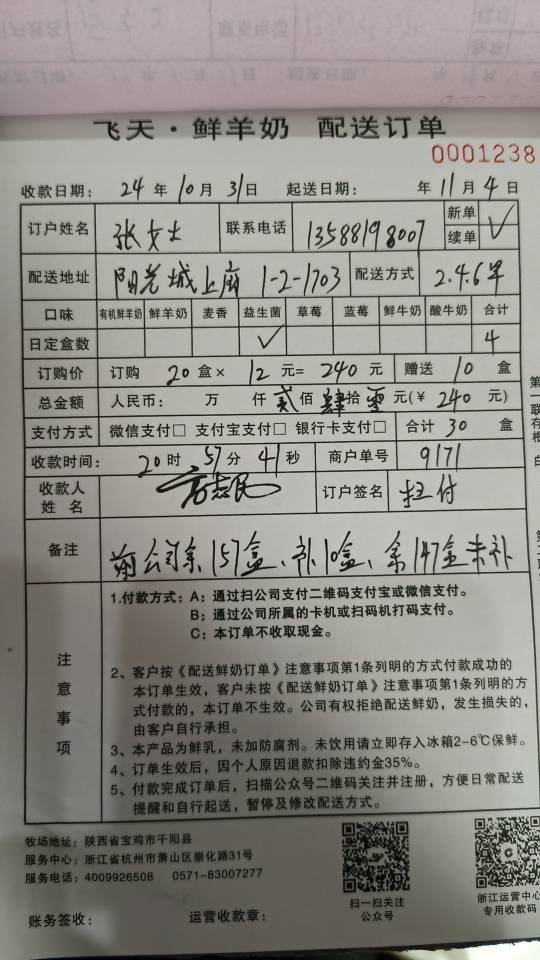 飞天·鲜羊奶 配送订单
0001238
收款日期: 24年10月31日 起送日期: 年11月4日
订户姓名 张女士 联系电话 13588198007 新单 续单 ✓
配送地址 阳光城上府 1-2-1703 配送方式 2.4.6早
口味 有机鲜羊奶 鲜羊奶 麦香 益生菌 草莓 蓝莓 鲜牛奶 酸牛奶 合计
日定盒数 ✓ 4
订购价 订购 20盒× 12元= 240元 赠送 10盒
总金额 人民币: 万 仟 贰佰 肆拾 零元(¥ 240元)
支付方式 微信支付□ 支付宝支付□ 银行卡支付□ 合计 30 盒
收款时间: 20时 57分 41秒 商户单号 9171
收款人姓名 订户签名 扫付
备注 前公司余157盒、补10盒、余147盒未补
注意事项
1.付款方式: A: 通过扫公司支付二维码支付宝或微信支付。
B: 通过公司所属的卡机或扫码机打码支付。
C: 本订单不收取现金。
2、客户按《配送鲜奶订单》注意事项第1条列明的方式付款成功的
本订单生效，客户未按《配送鲜奶订单》注意事项第1条列明的方
式付款的，本订单不生效。公司有权拒绝配送鲜奶，发生损失的，
由客户自行承担。
3、本产品为鲜乳，未加防腐剂。未饮用请立即存入冰箱2-6℃保鲜。
4、订单生效后，因个人原因退款扣除违约金35%。
5、付款完成订单后，扫描公众号二维码关注并注册，方便日常配送
提醒和自行起送，暂停及修改配送方式。
牧场地址: 陕西省宝鸡市千阳县
服务中心: 浙江省杭州市萧山区崇化路31号
服务电话: 4009926508 0571-83007277
扫一扫关注
公众号
浙江运营中心
专用收款码
账务签收: 运营收款章: